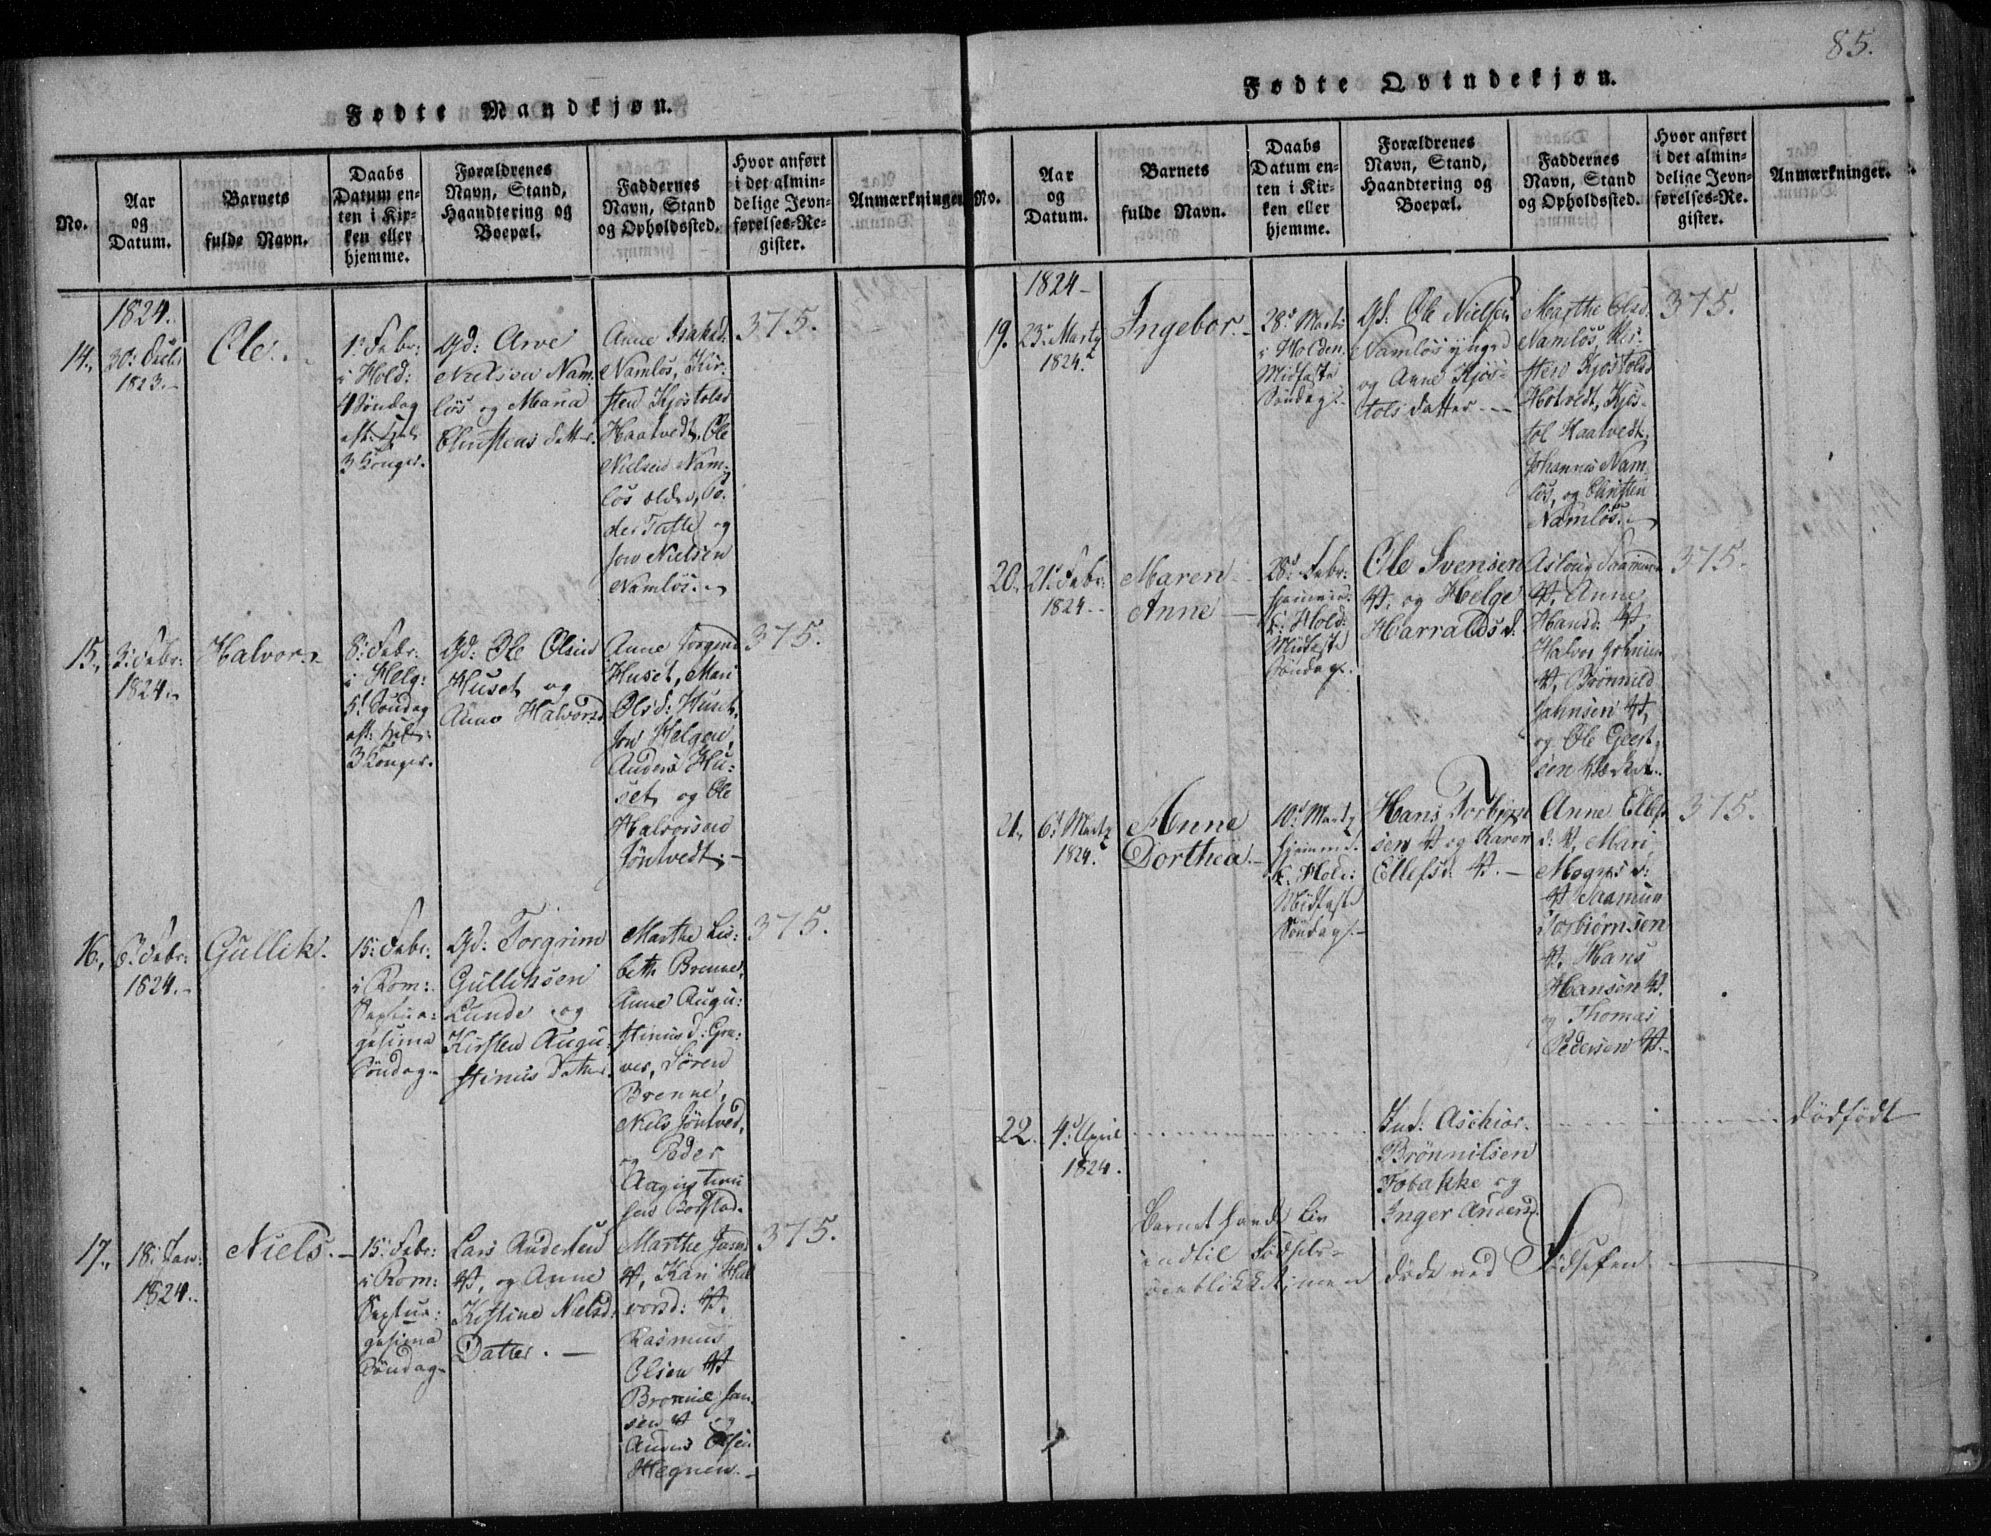 85.
Fødte Mandkjøn.
No.
Aar
og
Datum.
Barnets
fulde Navn.
Daabs
Datum en-
ten i Kir-
ken eller
hjemme.
Forældrenes
Navn, Stand,
Haandtering og
Boepæl.
Faddernes
Navn, Stand
og Opholdssted.
Hvor anført
i det almin-
delige Jevn-
førelses-Re-
gister.
Anmærkninger.
1824.
14.
30: Decbr
1823.
Ole.
1: Febr:
i Hold:
4 Søndag
aft: Hel:
3 Konger.
Gd: Arve
Nielsen Nam-
løs og Maria
Christens Datter.
Anne Isaksd:
Namløs, Kir-
sten Kjøstolsd
Haatvedt, Ole
Nielsen Nam-
løs ældre, Pe-
der Tatte og
Jon Nielsen
Namløs.
375.
15.
3: Febr:
1824.
Halvor.
8: Febr:
i Helg:
5t Søndag
aft: Hel:
3 Konger.
Gd: Ole Olsen
Huset og
Anne Halvorsd.
Anne Torgrimd
Huset, Mari
Olsd: Huset,
Jon Helgen,
Anders Hu-
set, og Ole
Halvorsen
Jøntvedt.
375.
16.
6: Febr:
1824.
Gullik.
15: Febr:
i Rom:
Septua-
gesima
Søndag
Gd: Torgrim
Gulliksen
Lunde og
Kirsten Augu-
stinus Datter.
Marthe Lis-
beth Brenne,
Anne Augu-
stinus d: Gra-
ver, Søren
Brenne,
Niels Jøntved,
og Peder
Augustinu
sen Borstad.
375.
17.
18: Jan:
1824.
Niels.
15: Febr:
i Rom:
Septua-
gesima
Søndag
Lars Andersen
og Anne
Kistine Nielsd:
Datter.
Marthe
Kari Hal
vorsd:
Rasmus
Olsen
Bronnil Jan-
sen og
Anders Olsen
Hegnen.
375.
Fødte Qvindekjøn.
No.
Aar
og
Datum.
Barnets
fulde Navn.
Daabs
Datum en-
ten i Kir-
ken eller
hjemme.
Forældrenes
Navn, Stand,
Haandtering og
Boepæl.
Faddernes
Navn, Stand
og Opholdssted.
Hvor anført
i det almin-
delige Jevn-
førelses-Re-
gister.
Anmærkninger.
1824
19.
23: Martz
1824.
Ingebor.
28: Marts
i Holden
Midfaste
Søndag.
Gd: Ole Nielsen
Namløs yngre
og Anne Kjøs-
tols Datter
Marthe Olsd
Namløs, Kir-
sten Kjøstolsd
Hotvedt, Kjøs-
tol Haatvedt,
Johannes Nam
løs, og Christen
Namløs.
375.
20.
21: Febr:
1824.
Maren
Anne
28: Febr:
hjemme.
k: Hold:
Midfaste
Søndag.
Ole Svensen
og Helge
Harralds d.
Asloug
Anne
Hansd:
Halvor Johnsen
Brønnild
Jahnsen
og Ole Geert
sen Værket.
375.
21.
6: Martz
1824.
Anne
Dorthea.
10: Martz
hjemme.
k: Hold:
Midfaste
Søndag.
Hans Torbjørn
sen og Karen
Ellefsd:
Anne Ellefs
d: Mari
Mognes d:
Saamun
Torbiørnsen
Hans
Hansen
og Thomas
Pedersen
375.
22.
4: April
1824.
Ind: Aschior
Brønnilsen
Tobakke og
Inger Andersd.
dødfødt
Barnet havde Liv
indtil Fødsels-
øieblikket, men døde ved Fødselen.